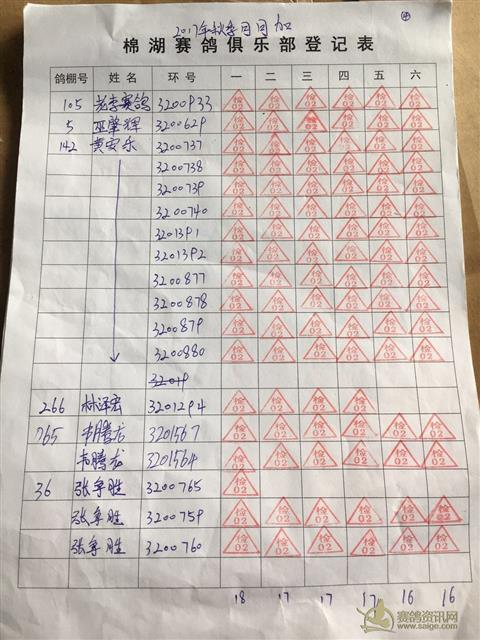 2017年秋季
棉湖赛鸽俱乐部登记表
鸽棚号 姓名 环号 一 二 三 四 五 六
105 老李赛鸽 3200933 检02 检02 检02 检02 检02 检02
5 巫肇辉 3200629 检02 检02 检02 检02 检02 检02
142 黄安乐 3200737 检02 检02 检02 检02 检02 检02
3200738 检02 检02 检02 检02 检02 检02
3200739 检02 检02 检02 检02 检02 检02
3200740 检02 检02 检02 检02 检02 检02
3201391 检02 检02 检02 检02 检02 检02
3201392 检02 检02 检02 检02 检02 检02
3200877 检02 检02 检02 检02 检02 检02
3200878 检02 检02 检02 检02 检02 检02
3200879 检02 检02 检02 检02 检02 检02
3200880 检02 检02 检02 检02 检02 检02
266 林泽宏 3201294 检02 检02 检02 检02
765 韦腾龙 3201567 检02 检02 检02 检02 检02 检02
韦腾龙 3201564 检02 检02 检02 检02 检02
36 张争胜 3200765 检02
张争胜 3200759 检02 检02 检02 检02 检02 检02
张争胜 3200760 检02 检02 检02 检02 检02 检02
18 17 17 17 16 16
赛鸽资讯网
www.saige.com